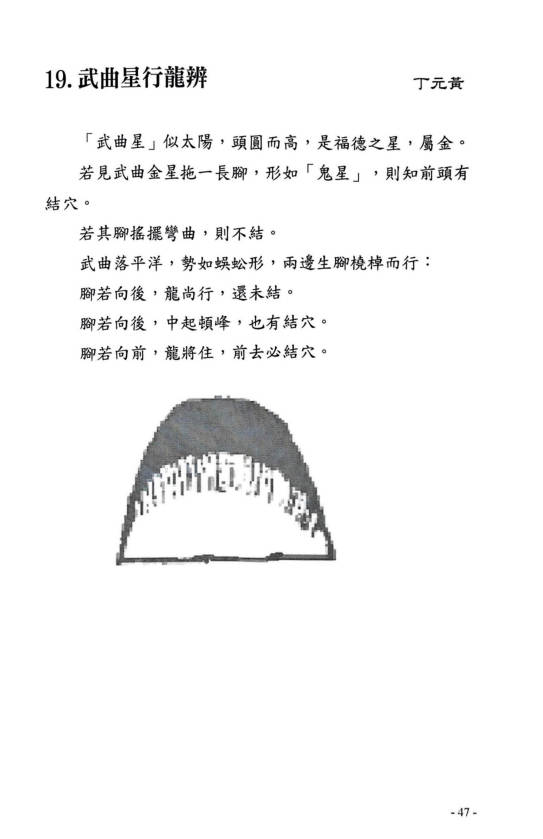 19. 武曲星行龍辨
丁元黃
「武曲星」似太陽，頭圓而高，是福德之星，屬金。
若見武曲金星拖一長腳，形如「鬼星」，則知前頭有
結穴。
若其腳搖擺彎曲，則不結。
武曲落平洋，勢如蜈蚣形，兩邊生腳橈棹而行：
腳若向後，龍尚行，還未結。
腳若向後，中起頓峰，也有結穴。
腳若向前，龍將住，前去必結穴。
- 47 -